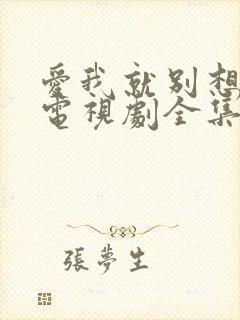 愛我就別想
電視劇全集
張夢生